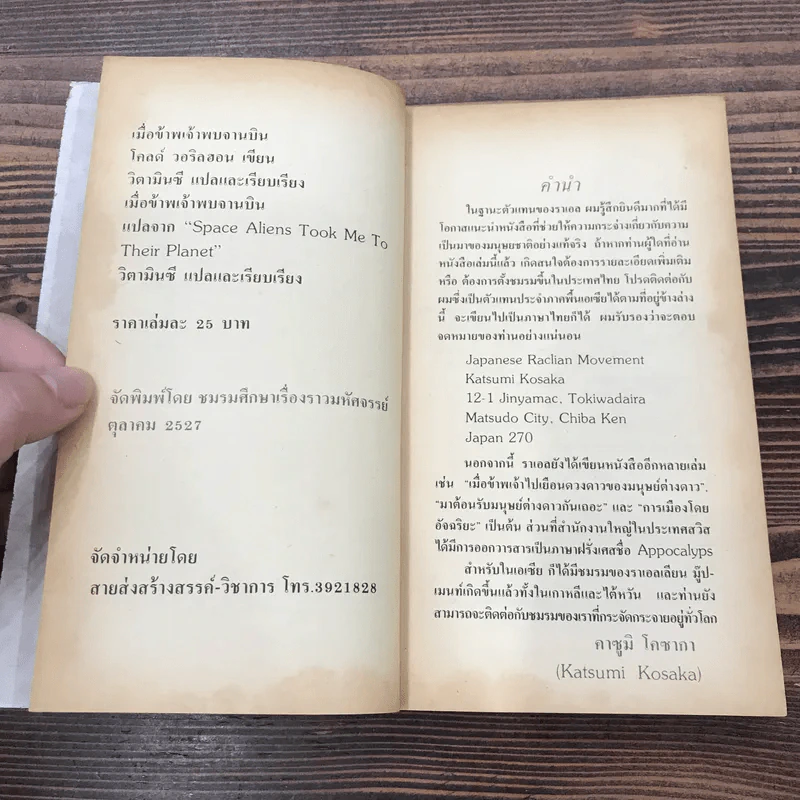 เมื่อข้าพเจ้าพบจานบิน
โคลด์ วอริลฮอน เขียน
วิตามินซี แปลและเรียบเรียง
เมื่อข้าพเจ้าพบจานบิน
แปลจาก “Space Aliens Took Me To
Their Planet”
วิตามินซี แปลและเรียบเรียง
ราคาเล่มละ 25 บาท
จัดพิมพ์โดย ชมรมศึกษาเรื่องราวมหัศจรรย์
ตุลาคม 2527
จัดจำหน่ายโดย
สายส่งสร้างสรรค์-วิชาการ โทร.3921828
คำนำ
ในฐานะตัวแทนของราเอล ผมรู้สึกยินดีมากที่ได้มี
โอกาสแนะนำหนังสือที่ช่วยให้ความกระจ่างเกี่ยวกับความ
เป็นมาของมนุษยชาติอย่างแท้จริง ถ้าหากท่านผู้ใดที่อ่าน
หนังสือเล่มนี้แล้ว เกิดสนใจต้องการรายละเอียดเพิ่มเติม
หรือ ต้องการตั้งชมรมขึ้นในประเทศไทย โปรดติดต่อกับ
ผมซึ่งเป็นตัวแทนประจำภาคพื้นเอเซียได้ตามที่อยู่ข้างล่าง
นี้ จะเขียนไปเป็นภาษาไทยก็ได้ ผมรับรองว่าจะตอบ
จดหมายของท่านอย่างแน่นอน
Japanese Raclian Movement
Katsumi Kosaka
12-1 Jinyamac, Tokiwadaira
Matsudo City, Chiba Ken
Japan 270
นอกจากนี้ ราเอลยังได้เขียนหนังสืออีกหลายเล่ม
เช่น “เมื่อข้าพเจ้าไปเยือนดวงดาวของมนุษย์ต่างดาว”,
“มาต้อนรับมนุษย์ต่างดาวกันเถอะ” และ “การเมืองโดย
อัจฉริยะ” เป็นต้น ส่วนที่สำนักงานใหญ่ในประเทศสวิส
ได้มีการออกวารสารเป็นภาษาฝรั่งเศสชื่อ Appocalyps
สำหรับในเอเซีย ก็ได้มีชมรมของราเอลเลียน มู๊ป-
เมนท์เกิดขึ้นแล้วทั้งในเกาหลีและไต้หวัน และท่านยัง
สามารถจะติดต่อกับชมรมของเราที่กระจัดกระจายอยู่ทั่วโลก
คาซูมิ โคซากา
(Katsumi Kosaka)